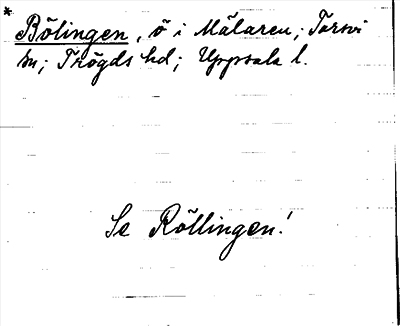 * Bölingen, ö i Mälaren; Torsvi
sn; Trögds hd; Uppsala l.
Se Röllingen!